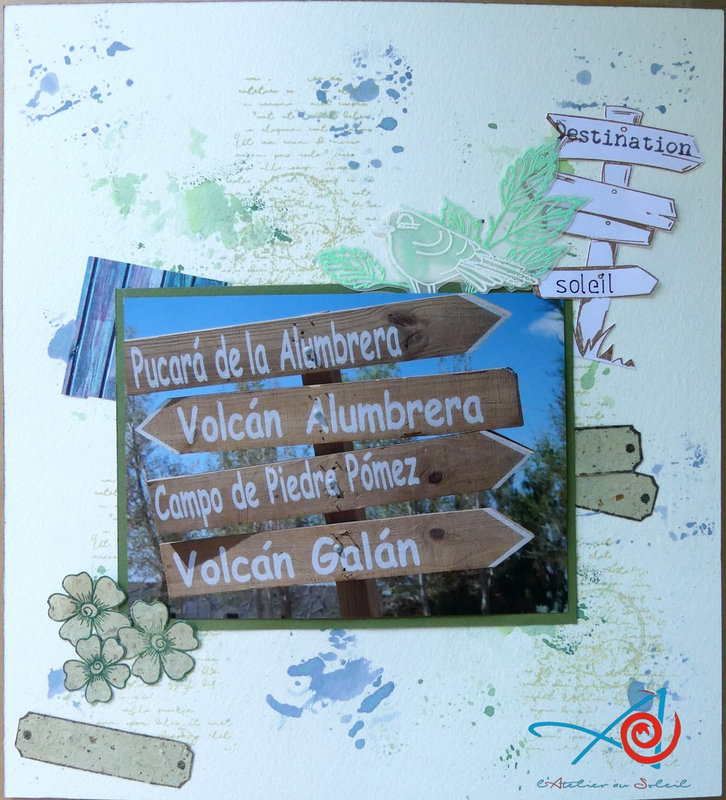 Destination
soleil
Pucará de la Alumbrera
Volcán Alumbrera
Campo de Piedre Pómez
Volcán Galán
l'Atelier au Soleil